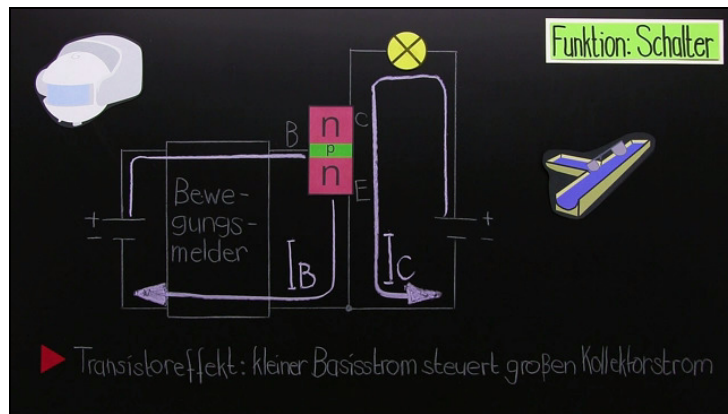 Funktion: Schalter
B
n
C
p
n
E
Bewe-
gungs-
melder
+
-
+
-
I_B
I_C
Transistoreffekt: kleiner Basisstrom steuert großen Kollektorstrom